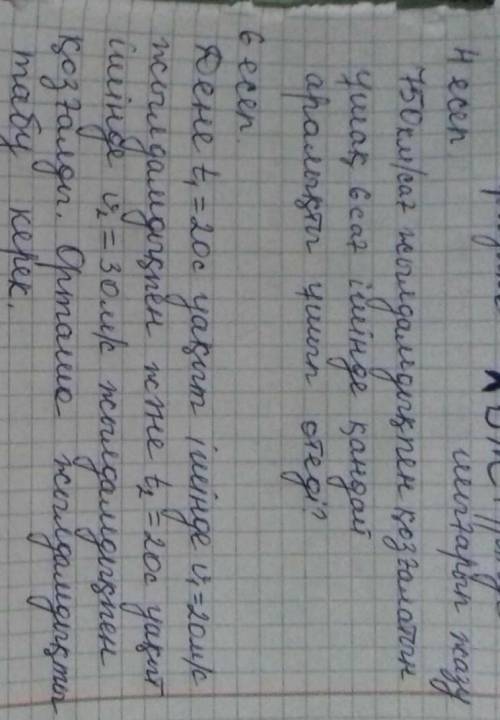 шығарып жазу
4 есеп.
750км/сағ жылдамдықпен қозғалатын
ұшақ 6 сағ ішінде қандай
аралықты ұшып өтеді?
6 есеп.
Дене t₁ = 20с уақыт ішінде υ₁ = 20м/с
жылдамдықпен және t₂ = 20с уақыт
ішінде υ₂ = 30м/с жылдамдықпен
қозғалды. Орташа жылдамдықты
табу керек.